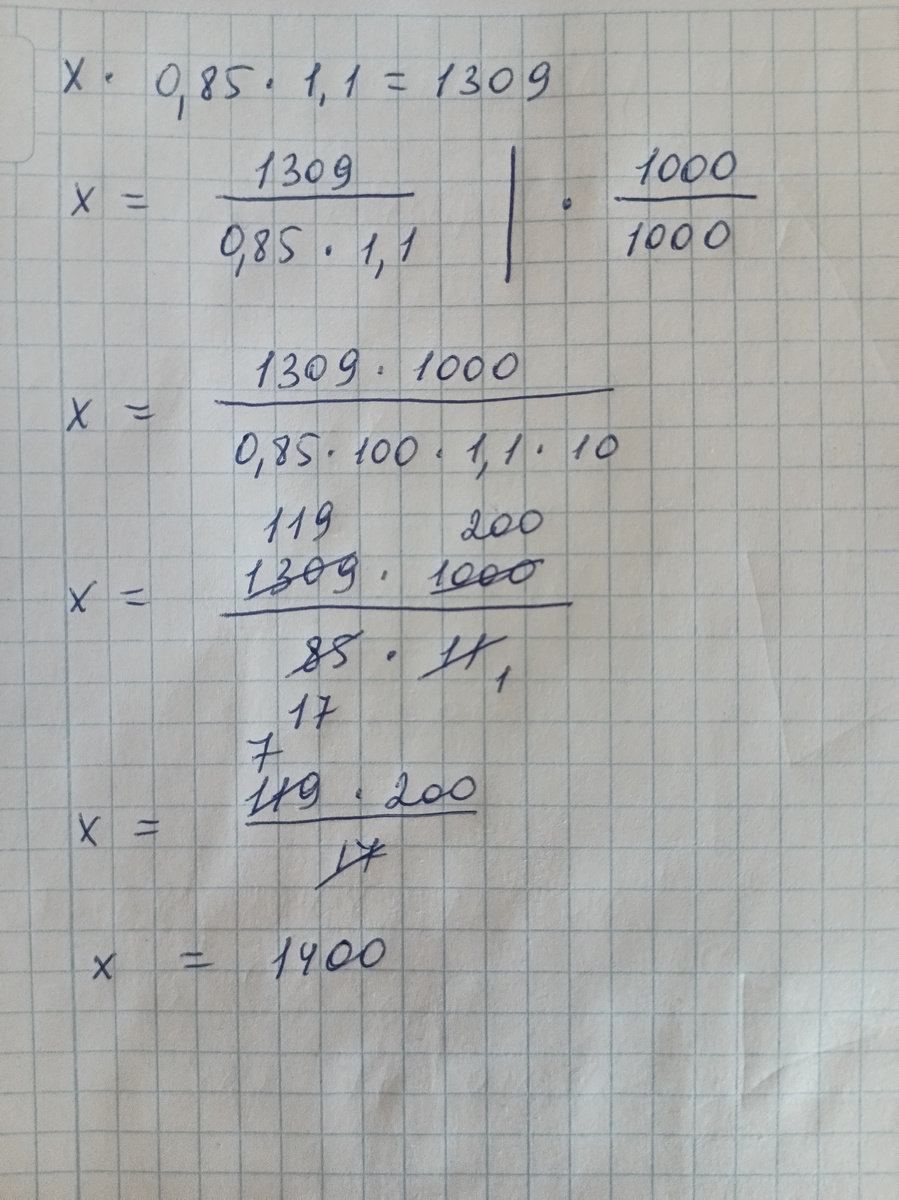 x · 0,85 · 1,1 = 1309
x = 1309 / 0,85 · 1,1 | · 1000 / 1000
x = 1309 · 1000 / 0,85 · 100 · 1,1 · 10
119 200
x = 1309 · 1000 / 85 · 11 1
17
7
x = 119 · 200 / 17
x = 1400